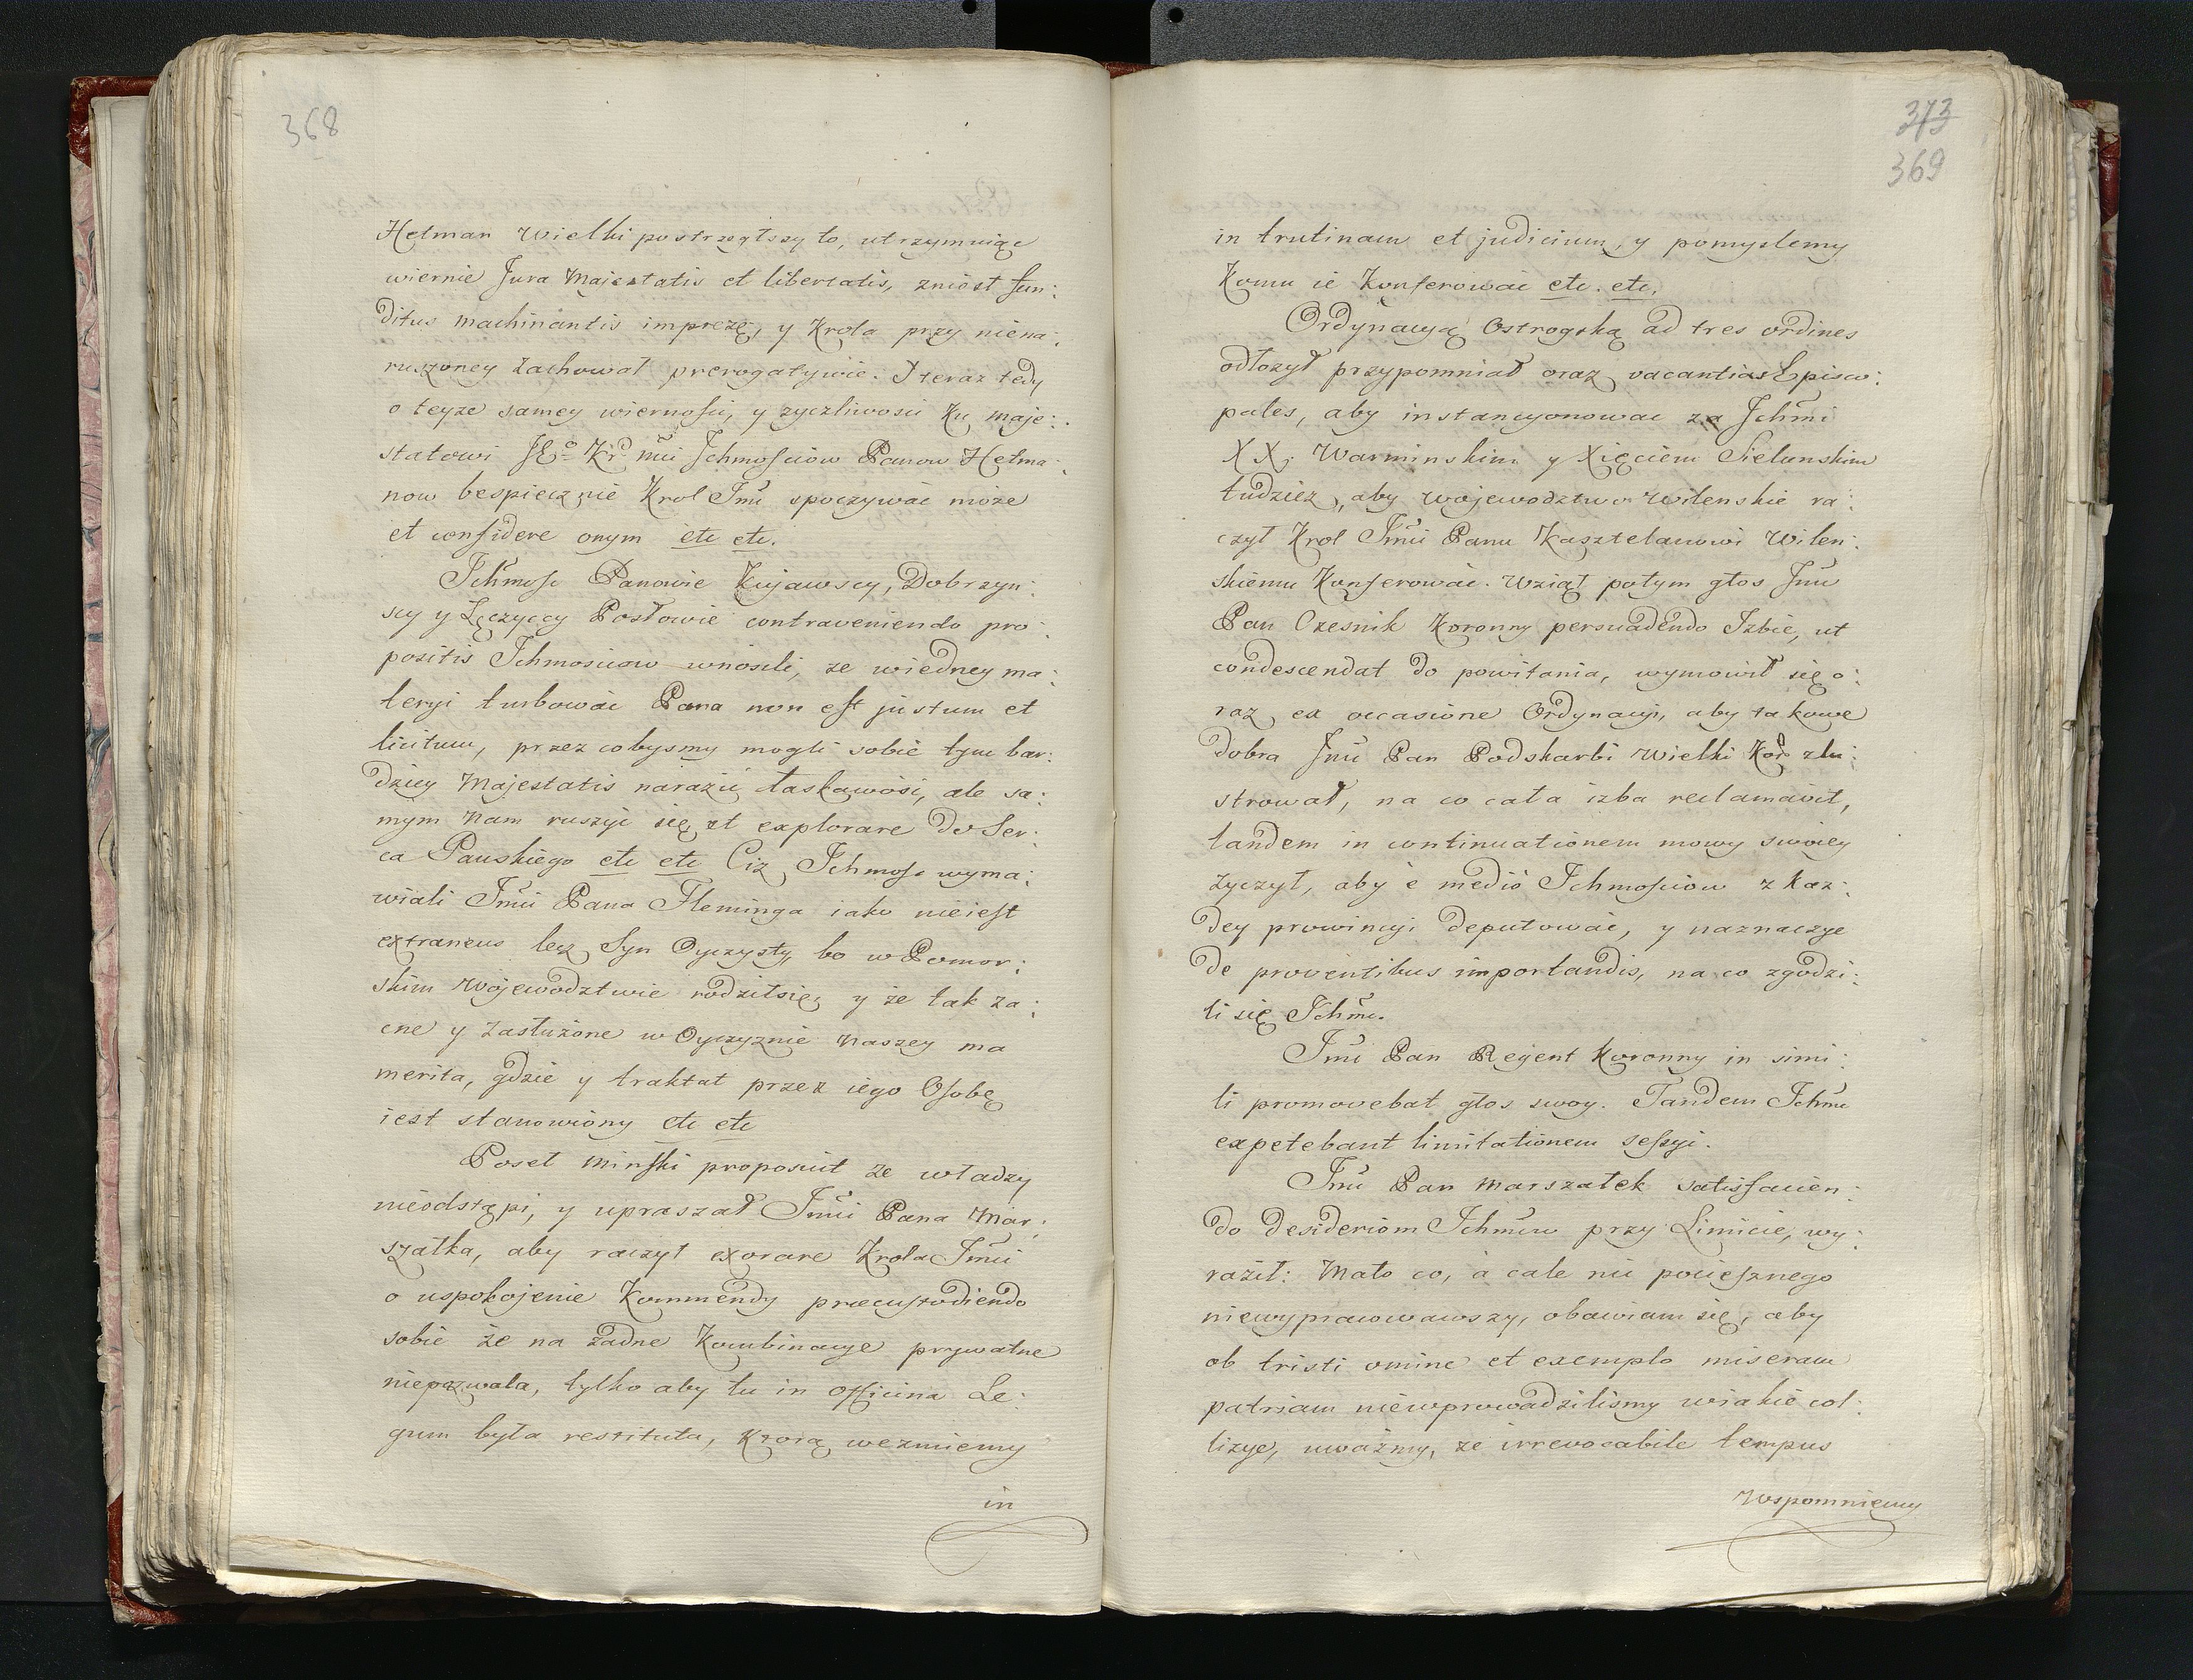 368
Hetman Wielki postrzegłszy to, utrzymuiąc
wiernie Jura Majestatis et libertatis, zniosł fun:
ditus machinantis imprezę, y Krola przy niena:
ruszoney zachował prerogatywie. I teraz tedy
o teyze samey wiernosci, y zyczliwosci ku maje:
statowi JEo Kr. mci Jchmosciow Panow Hetma:
now bespiecznie Krol Jmć spoczywać może
et confidere onym etc etc.
Jchmość Panowie Kujawscy, Dobrzyn:
scy y Łęczyccy Posłowie contraveniendo pro:
positis Jchmosciow wnosili, ze wiedney ma:
teryi turbować Pana non est justum et
licitum, przez cobysmy mogli sobie tym bar:
dziey Majestatis narazić łaskawość, ale sa:
mym nam ruszyć się et explorare do Ser:
ca Panskiego etc etc Ciz Jchmość wyma:
wiali Jmći Pana Fleminga iako nieiest
extraneus lecz Syn Oyczysty, bo w Pomor:
skim Wojewodztwie rodziłsię, y że tak za:
cne y zasłużone w Oyczyznie naszey ma
merita, gdzie y traktat przez iego Osobę
iest stanowiony etc etc
Poseł Minski proposuit ze władzy
nieodstąpi, y upraszał Jmći Pana Mar:
szałka, aby raczył exorare Krola Jmći
o uspokojenie Kommendy præcustodiendo
sobie że na żadne Kombinacye prywatne
niepozwala, tylko aby tu in Officina Le:
gum była restituta, ktorą wezmiemy
in
373
369
in trutinam et judicium, y pomyslemy
Komu ie Konferować etc. etc.
Ordynacyą Ostrogską ad tres ordines
odłozył przypomniał oraz vacantias Episco:
pales, aby instancyonować za Jchmći
XX. Warminskim y Xięciem Sielunskim
tudziez, aby wojewodztwo Wilenskie ra:
czył Krol Jmći Panu Kasztelanowi Wilen:
skiemu Konferować. Wziął potym głos Jmć
Pan Czesnik Koronny persuadendo Izbie, ut
condescendat do powitania, wymowił się o:
raz ex occasione Ordynacyi, aby takowe
dobra Jmć Pan Podskarbi Wielki Kor. zlu:
strował, na co cała izba reclamavit,
tandem in continuationem mowy swoiey
życzył, aby è medio Jchmosciow z Kaz:
dey prowincyi deputować, y naznaczyć
de proventibus importandis, na co zgodzi:
li się Jchmć.
Jmć Pan Regent Koronny in simi:
li promovebat głos swoy. Tandem Jchmć
expetebant limitationem sessyi.
Jmć Pan Marszałek satisfacien:
do desideriom Jchmciw przy Limicie, wy:
raził: Mało co, á cale nic pociesznego
niewypracowawszy, obawiam się, aby
ob tristi omine et exemplo miseram
patriam niewprowadzilismy wiakie col:
lizye, uważmy, ze irrevocabile tempus
Wspomniemy